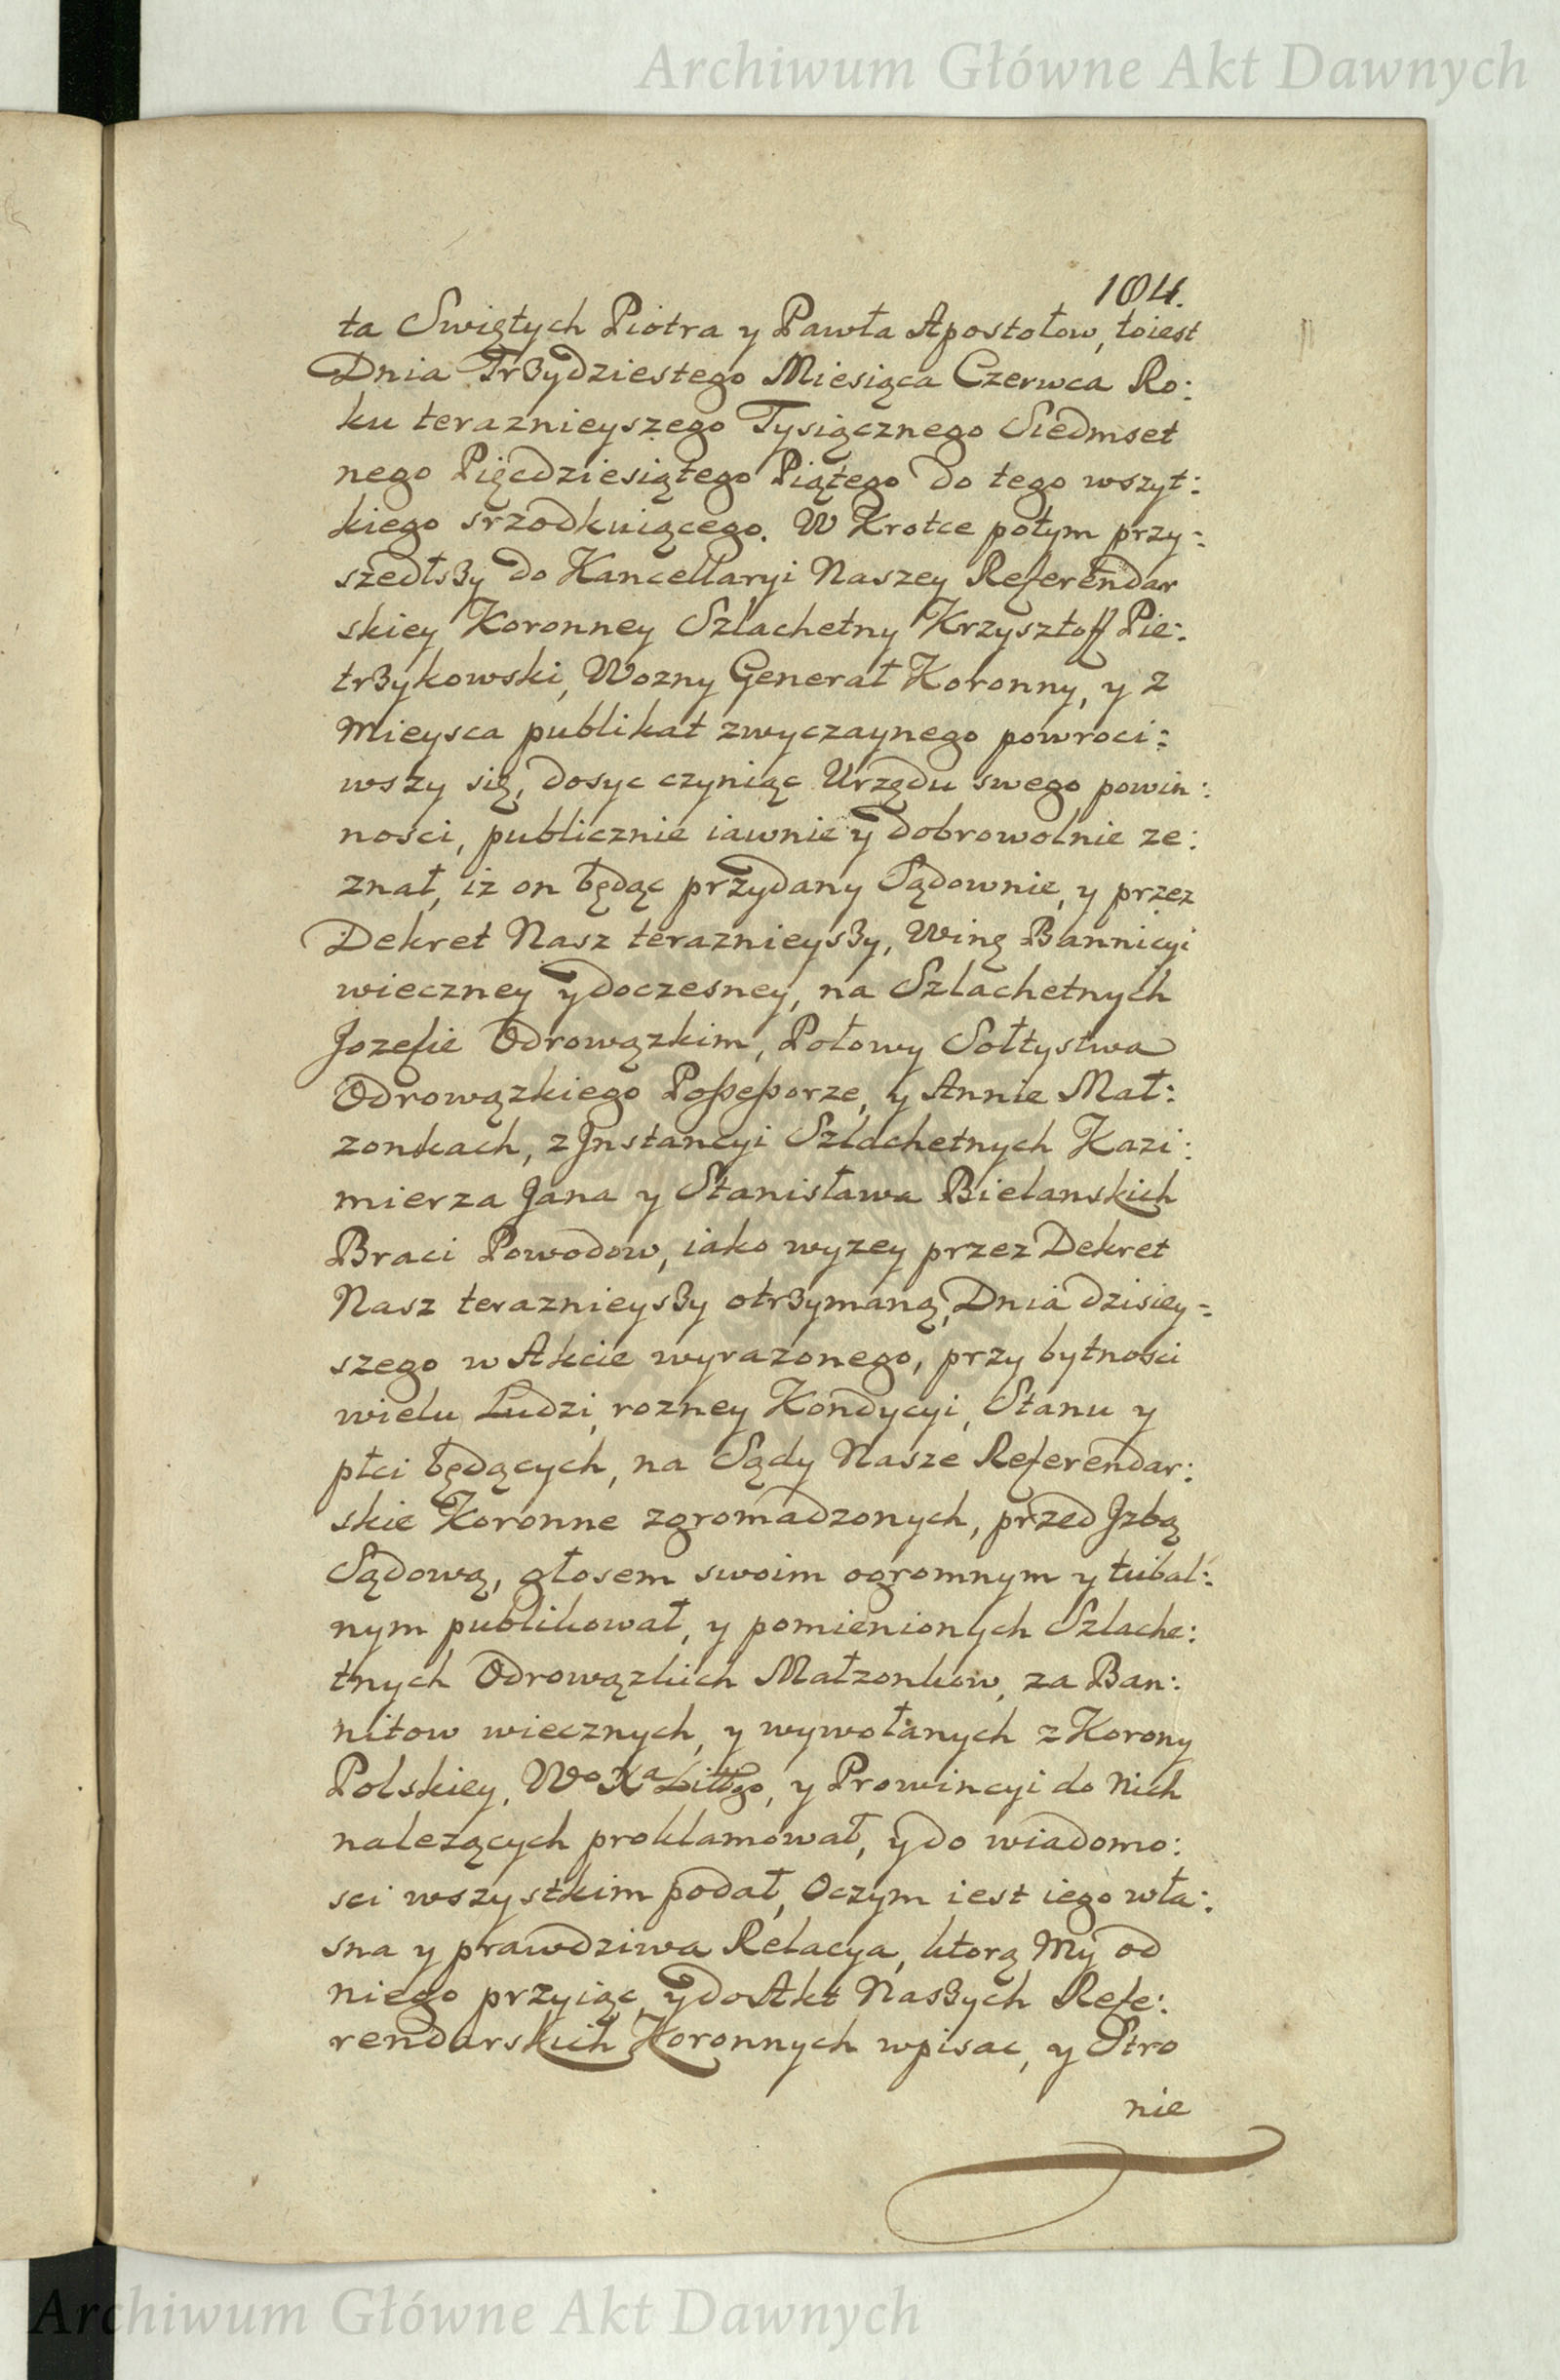 Archiwum Główne Akt Dawnych
104.
ta Swiętych Piotra y Pawła Apostołow, toiest
Dnia Trzydziestego Miesiąca Czerwca Ro:
ku teraznieyszego Tysiącznego Siedmset
nego Pięcdziesiątego Piątego do tego wszyt:
kiego srzodkuiącego. W Krotce potym przy:
szedłszy do Kancellaryi Naszey Referendar
skiey Koronney Szlachetny Krzysztoff Pie:
trzykowski, Wozny Generał Koronny, y z
mieysca publikat zwyczaynego powroci:
wszy się, dosyc czyniąc Urzędu swego powin:
nosci, publicznie iawnie y dobrowolnie ze:
znał, iz on będąc przydany Sądownie, y przez
Dekret Nasz teraznieyszy, Winę Bannicyi
wieczney y doczesney, na Szlachetnych
Jozefie Odrowązkim, Połowy Sołtystwa
Odrowązkiego Possessorze, y Annie Mał:
zonkach, z Jnstancyi Szlachetnych Kazi:
mierza Jana y Stanisława Bielanskich
Braci Powodow, iako wyzey przez Dekret
Nasz teraznieyszy otrzymaną, Dnia dzisiey:
szego w Akcie wyrazonego, przy bytnosci
wielu Ludzi, rozney Kondycyi, Stanu y
płci będących, na Sądy Nasze Referendar:
skie Koronne zgromadzonych, przed Jzbą
Sądową, głosem swoim ogromnym y tubal:
nym publikował, y pomienionych Szlache:
tnych Odrowązkich Małzonkow, za Ban:
nitow wiecznych, y wywołanych z Korony
Polskiey, Wo Xa Littgo, y Prowincyi do nich
nalezących proklamował, y do wiadomo:
sci wszystkim podał, Oczym iest iego wła:
sna y prawdziwa Relacya, ktorą My od
niego przyiąc, y do Akt Naszych Refe:
rendarskich Koronnych wpisac, y Stro
nie
Archiwum Główne Akt Dawnych